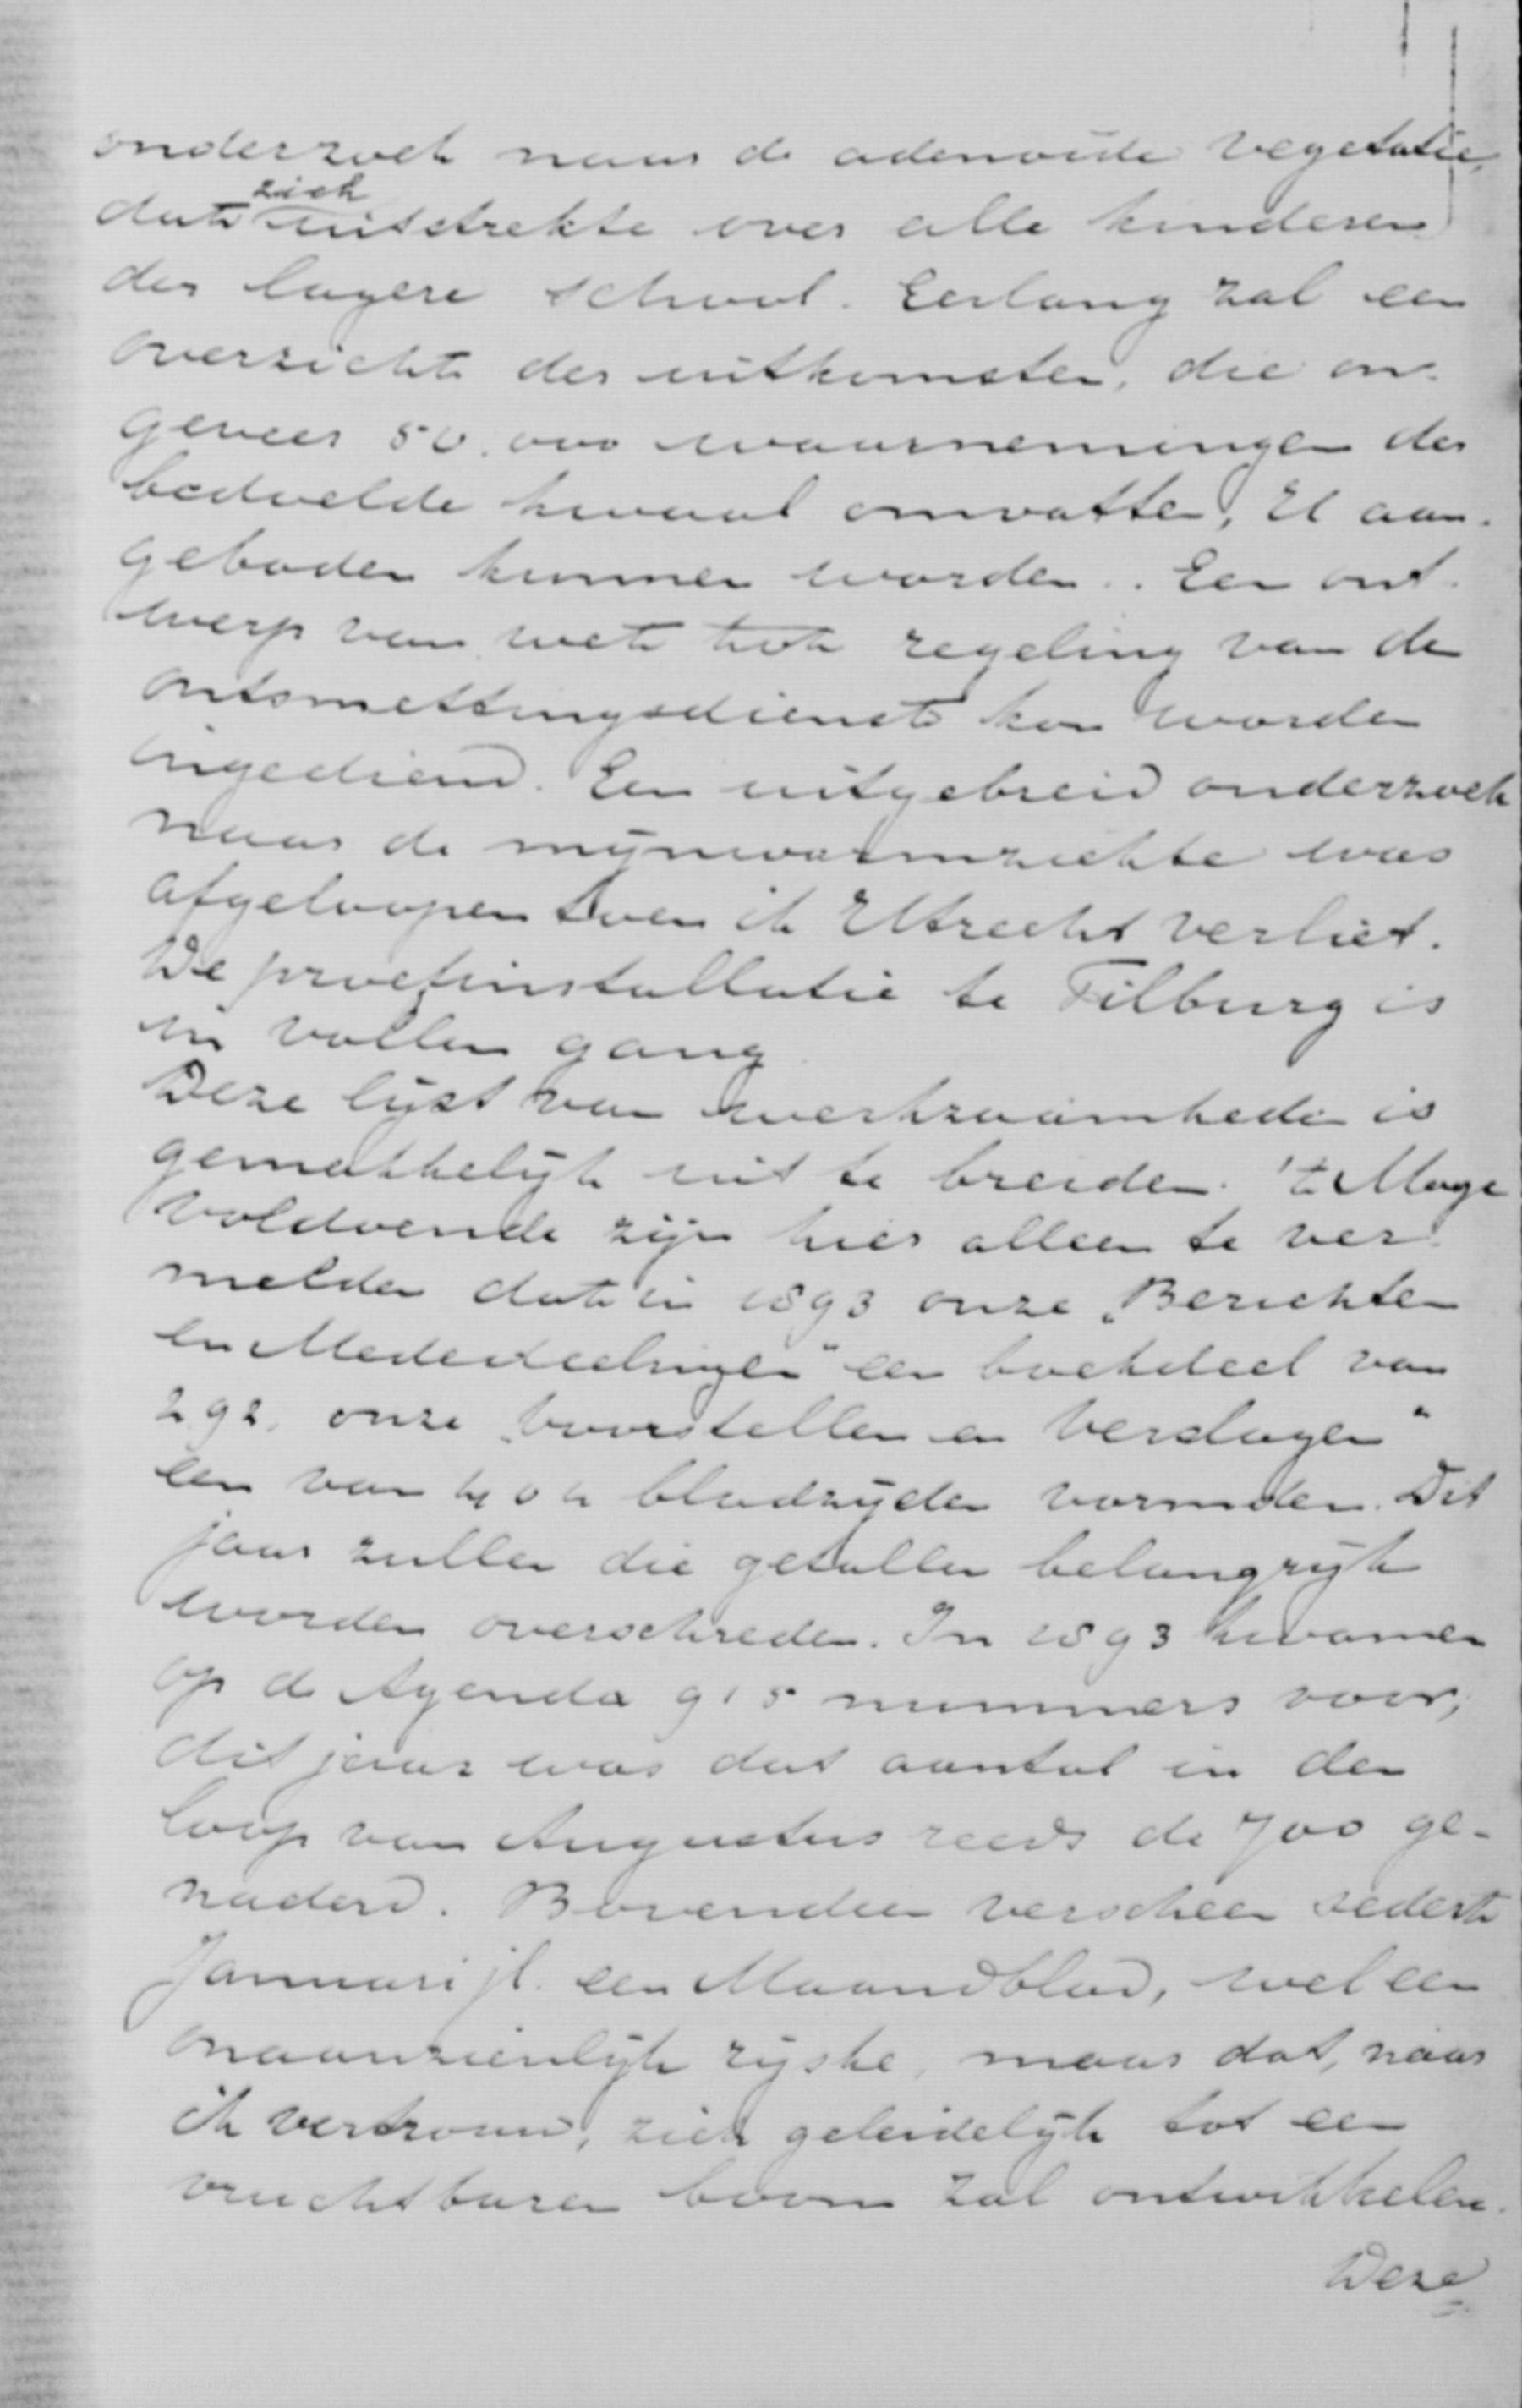 onderzoek naar de adenoide vegetatie,
dat zich uitstrekte over alle kinderen
der lagere school. Eerlang zal een
overzicht der uitkomsten, die on-
geveer 50.000 waarnemingen der
bedoelde kwaal omvatten, U aan-
geboden kunnen worden. Een ont-
werp van wet tot regeling van de
ontsmettingsdienst kon worden
ingediend. Een uitgebreid onderzoek
naar de mijnwormziekte was
afgeloopen toen ik Utrecht verliet.
De proefinstallatie te Tilburg is
in vollen gang
Deze lijst van werkzaamheden is
gemakkelijk uit te breiden. 't Moge
voldoende zijn hier alleen te ver-
melden dat in 1893 onze „Berichten
en Mededeelingen" een boekdeel van
292, onze „voorstellen en Verslagen"
een van 404 bladzijden vormden. Dit
jaar zullen die getallen belangrijk
worden overschreden. In 1893 kwamen
op de Agenda 915 nummers voor,
dit jaar was dat aantal in den
loop van Augustus reeds de 700 ge-
naderd. Bovendien verscheen sedert
Januari jl. een Maandblad, wel een
onaanzienlijk rijske, maar dat, naar
ik vertrouw, zich geleidelijk tot een
vruchtbaren boom zal ontwikkelen.
Deze